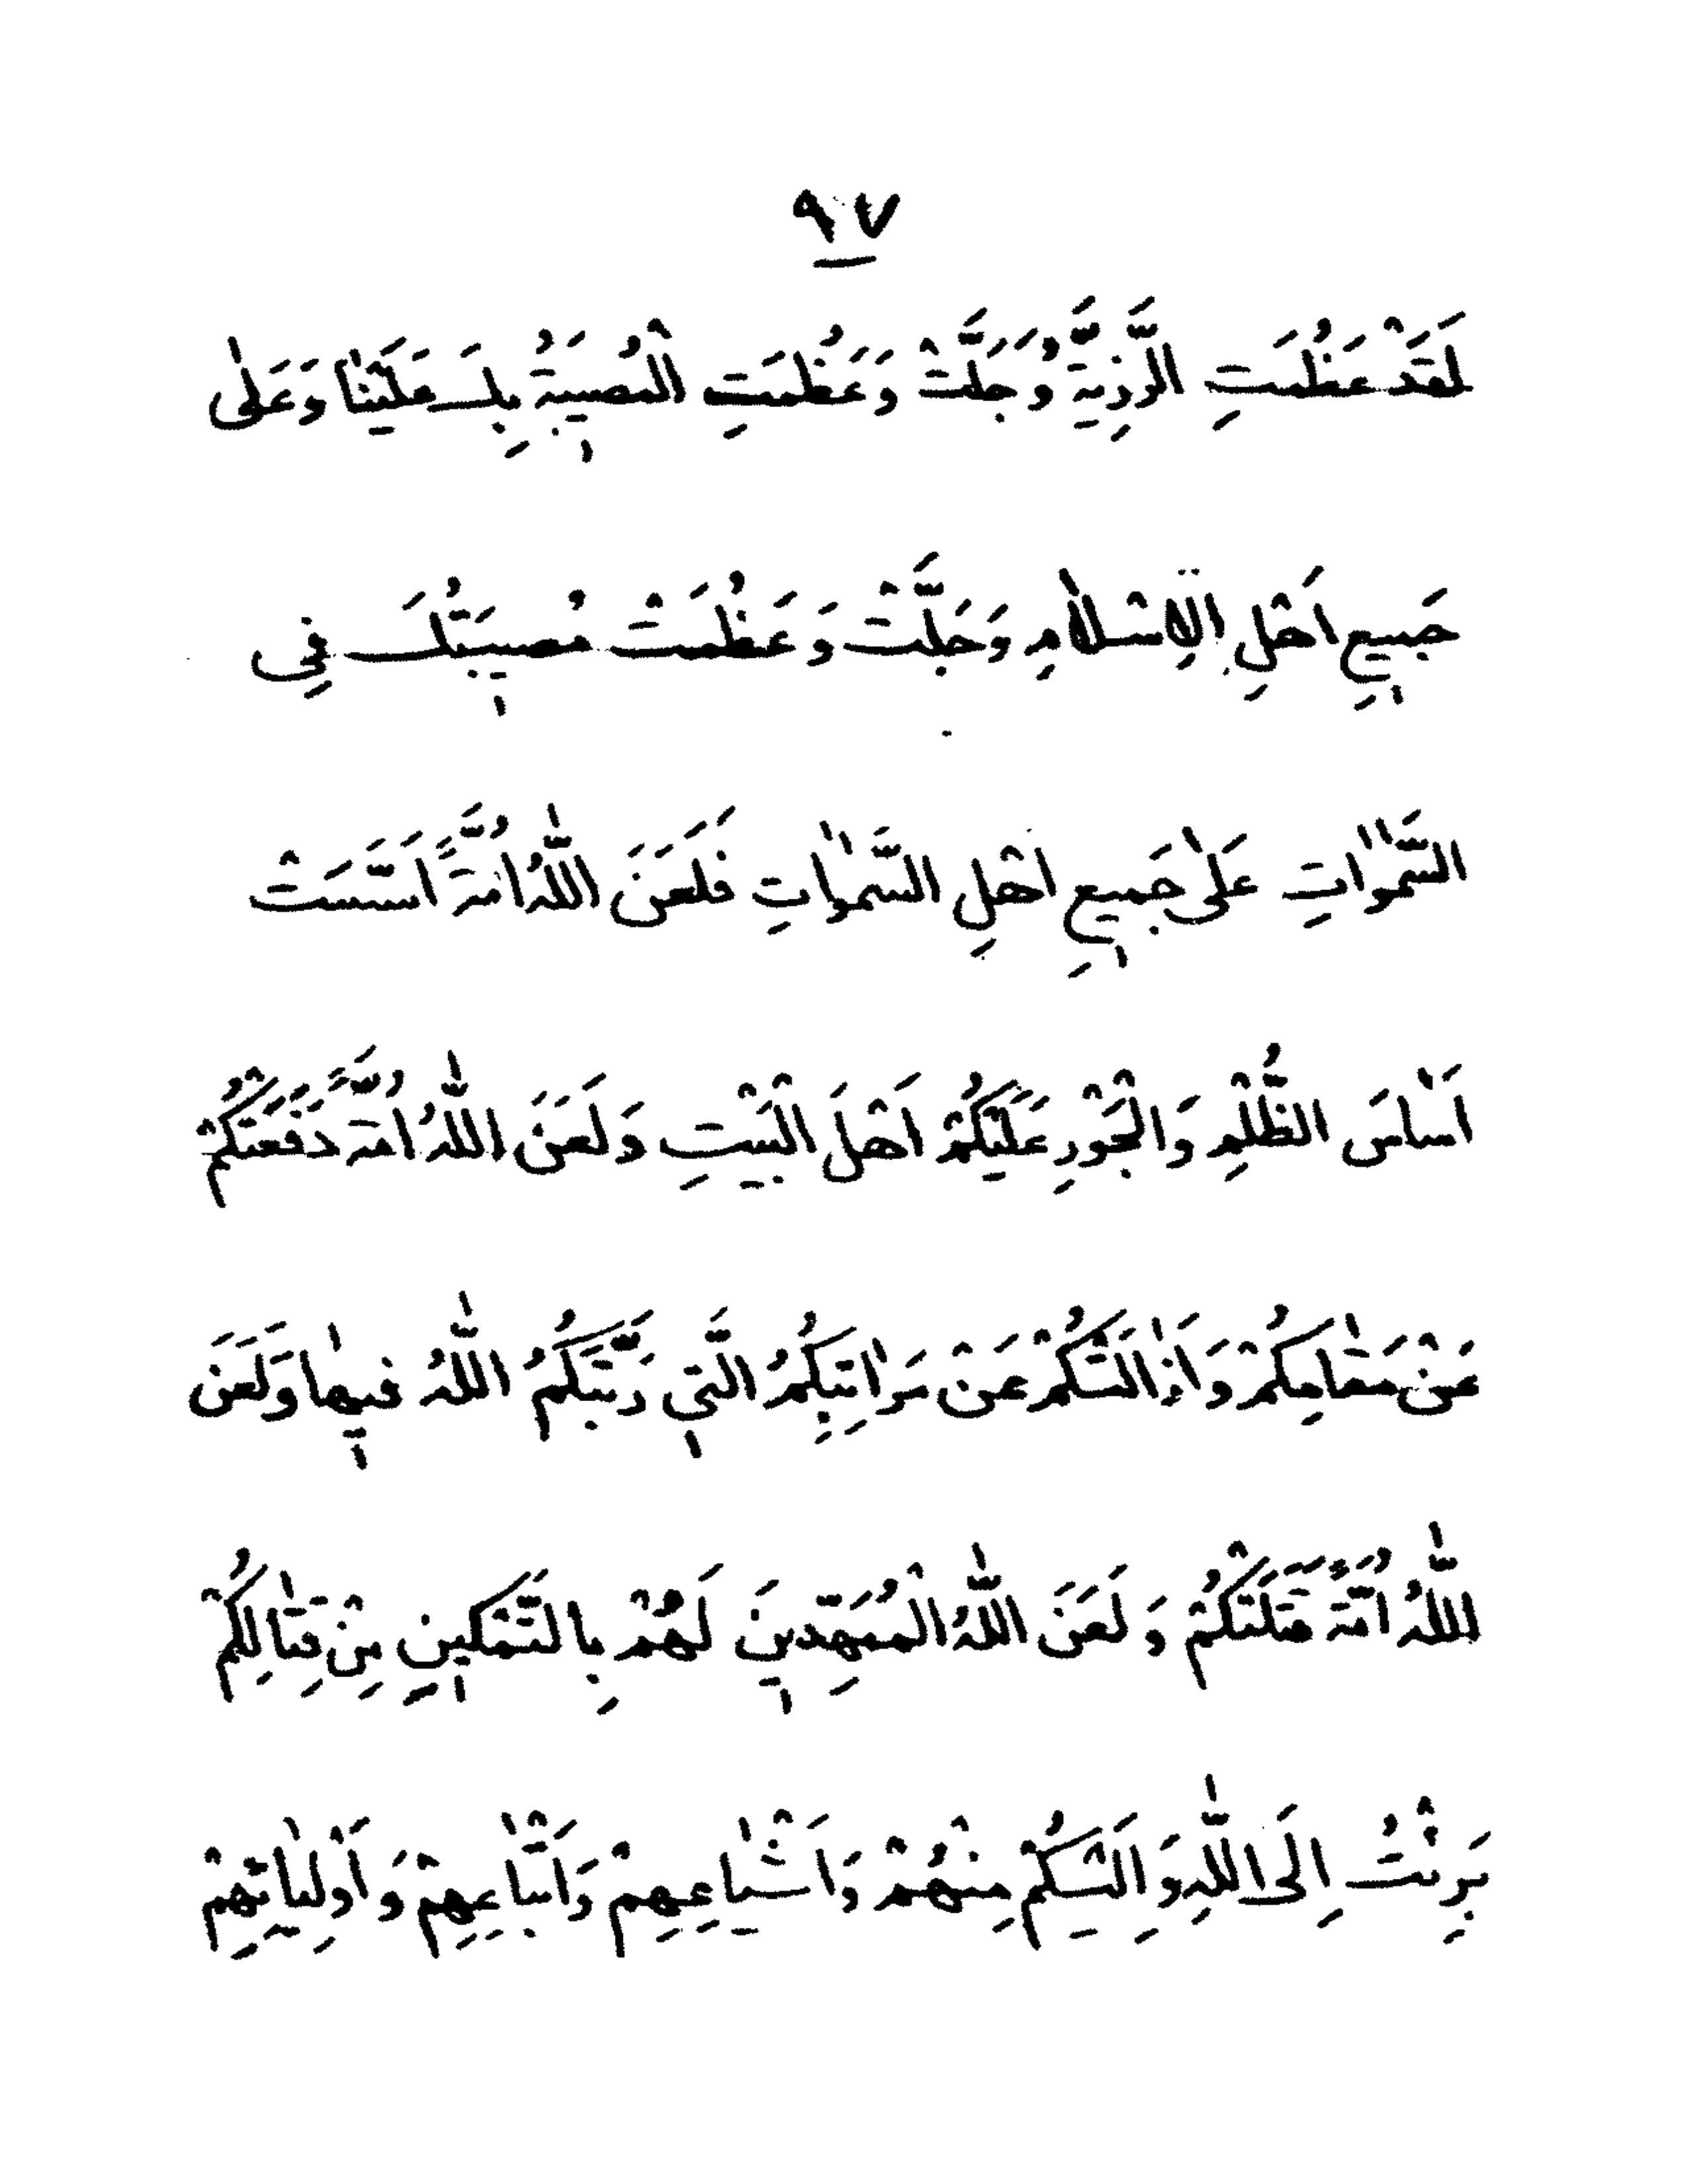 ٩٧
لَقَدْ عَظُمَتِ الرَّزِيَّةُ وَجَلَّتْ وَعَظُمَتِ الْمُصيبَةُ بِكَ عَلَيْنٰا وَعَلٰى
جَميعِ اَهْلِ الْاِسْلاٰمِ وَجَلَّتْ وَعَظُمَتْ مُصيبَتُكَ فِى
السَّمٰوٰاتِ عَلٰى جَميعِ اَهْلِ السَّمٰوٰاتِ فَلَعَنَ اللّٰهُ اُمَّةً اَسَّسَتْ
اَسٰاسَ الظُّلْمِ وَالْجَوْرِ عَلَيْكُمْ اَهْلَ الْبَيْتِ وَلَعَنَ اللّٰهُ اُمَّةً دَفَعَتْكُمْ
عَنْ مَقٰامِكُمْ وَاَزٰالَتْكُمْ عَنْ مَرٰاتِبِكُمُ الَّتى رَتَّبَكُمُ اللّٰهُ فيهٰا وَلَعَنَ
اللّٰهُ اُمَّةً قَتَلَتْكُمْ وَ لَعَنَ اللّٰهُ الْمُمَهِّدينَ لَهُمْ بِالتَّمْكينِ مِنْ قِتٰالِكُمْ
بَرِئْتُ اِلَى اللّٰهِ وَ اِلَيْكُمْ مِنْهُمْ وَ اَشْيٰاعِهِمْ وَاَتْبٰاعِهِمْ وَ اَوْلِيٰائِهِمْ